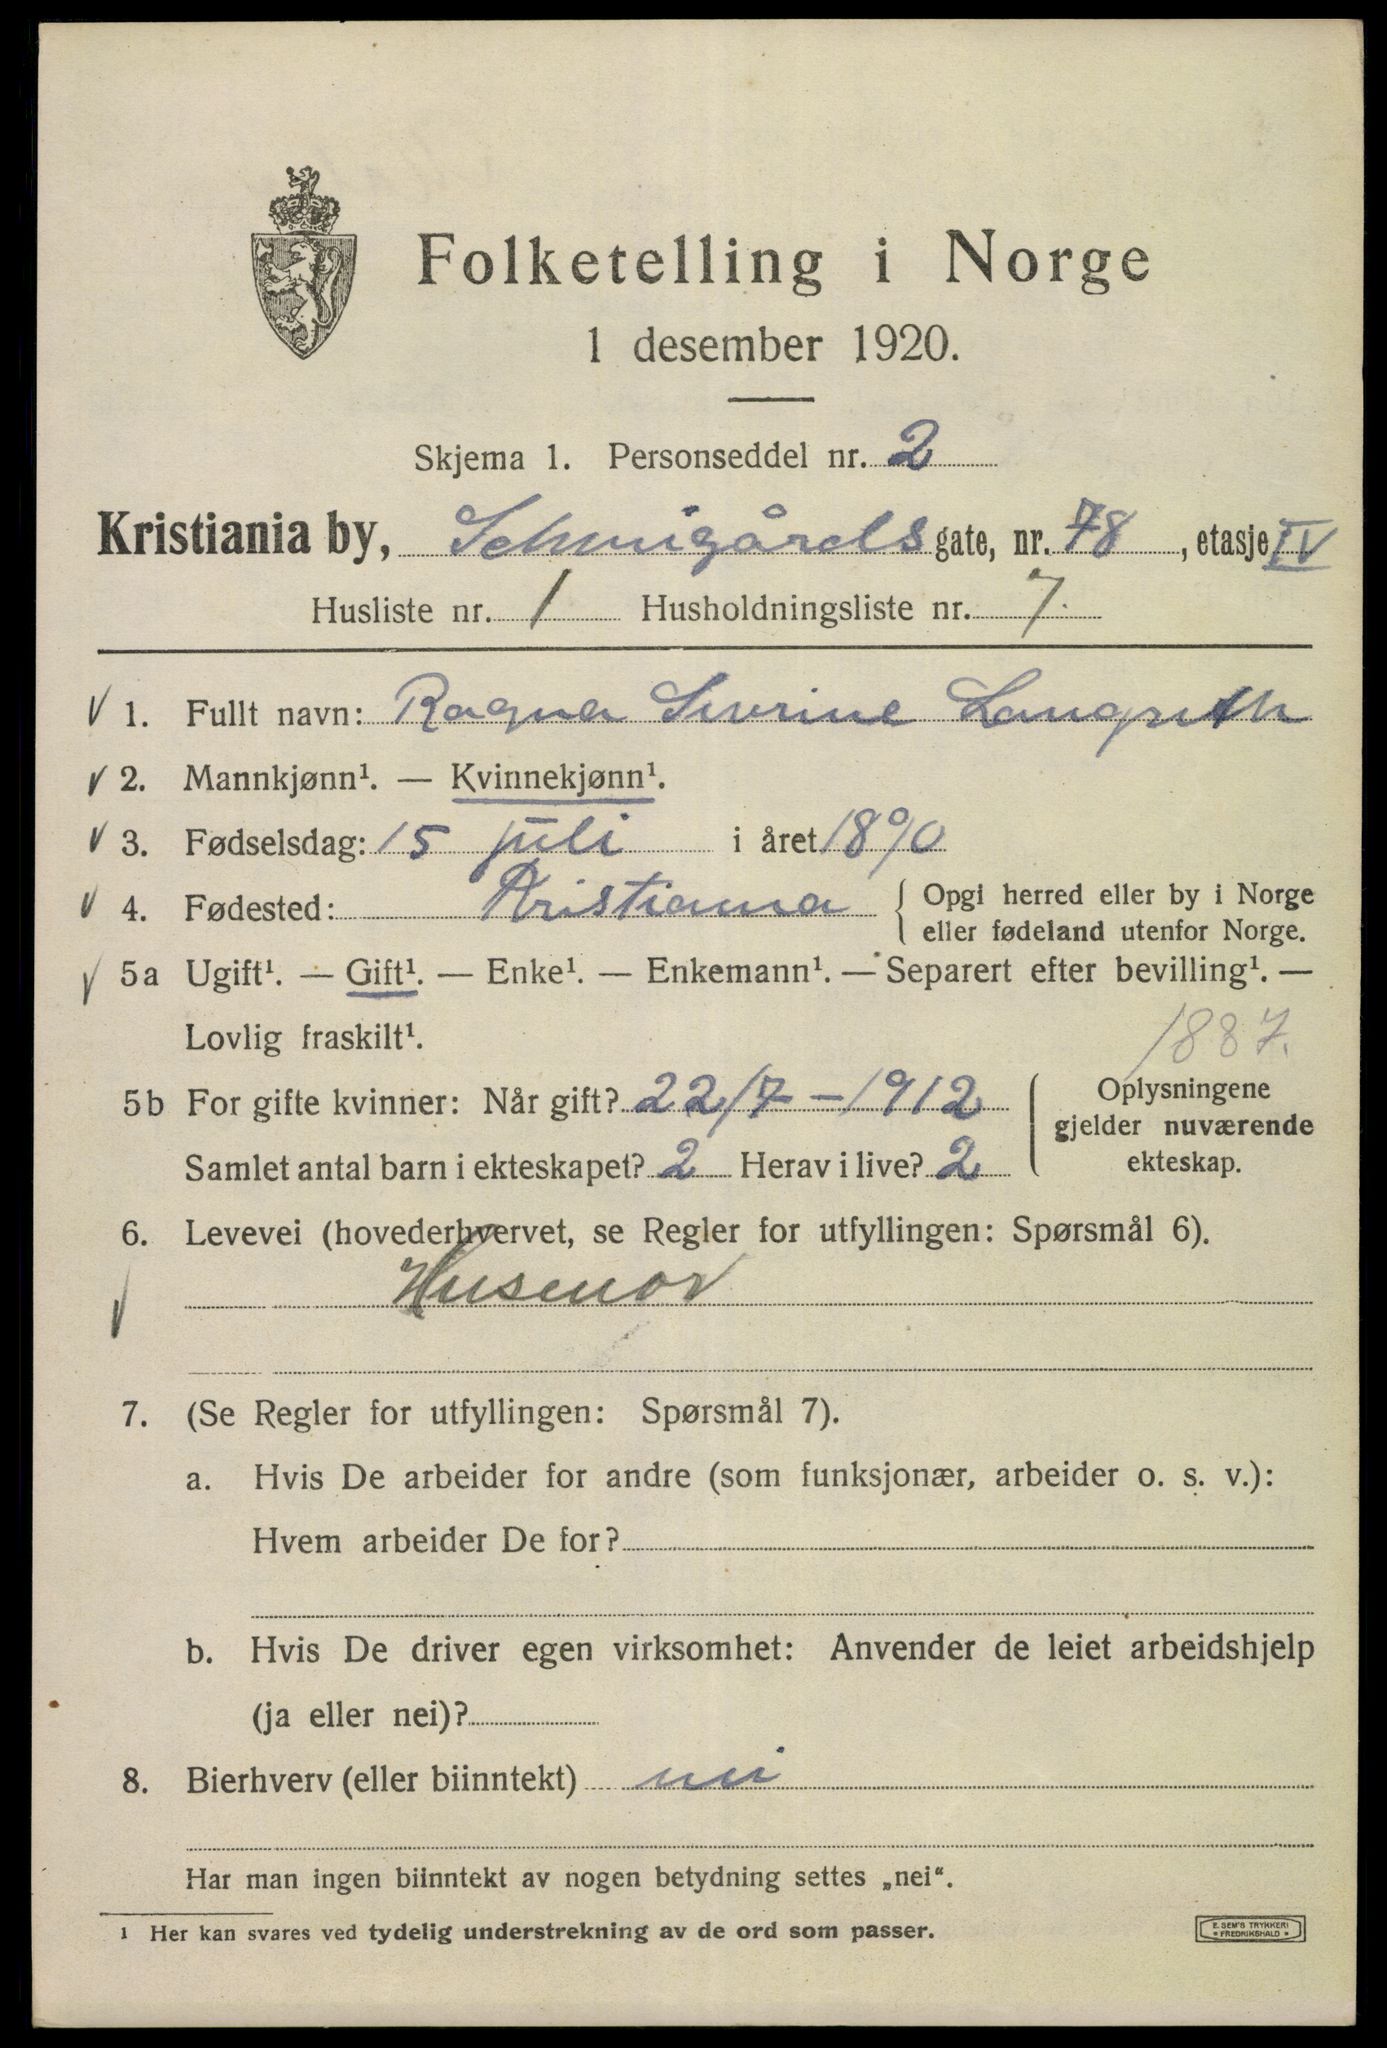 Folketelling i Norge
1 desember 1920.
Skjema 1. Personseddel nr. 2
Kristiania by, Schweigårds gate, nr. 78, etasje IV
Husliste nr. 1 Husholdningsliste nr. 7.
1. Fullt navn: Ragna Severine Langseth
2. Mannkjønn¹. — Kvinnekjønn¹.
3. Fødselsdag: 15 juli i året 1890
4. Fødested: Kristiania { Opgi herred eller by i Norge
eller fødeland utenfor Norge.
5a Ugift¹. — Gift¹. — Enke¹. — Enkemann¹. — Separert efter bevilling¹. —
Lovlig fraskilt¹.
1887.
5b For gifte kvinner: Når gift? 22/7 – 1912
Samlet antal barn i ekteskapet? 2 Herav i live? 2
Oplysningene
gjelder nuværende
ekteskap.
6. Levevei (hovederhvervet, se Regler for utfyllingen: Spørsmål 6).
Husmor
7. (Se Regler for utfyllingen: Spørsmål 7).
a. Hvis De arbeider for andre (som funksjonær, arbeider o. s. v.):
Hvem arbeider De for?
b. Hvis De driver egen virksomhet: Anvender de leiet arbeidshjelp
(ja eller nei)?
8. Bierhverv (eller biinntekt) nei
Har man ingen biinntekt av nogen betydning settes „nei“.
¹ Her kan svares ved tydelig understrekning av de ord som passer.
E. SEM'S TRYKKERI
FREDRIKSHALD